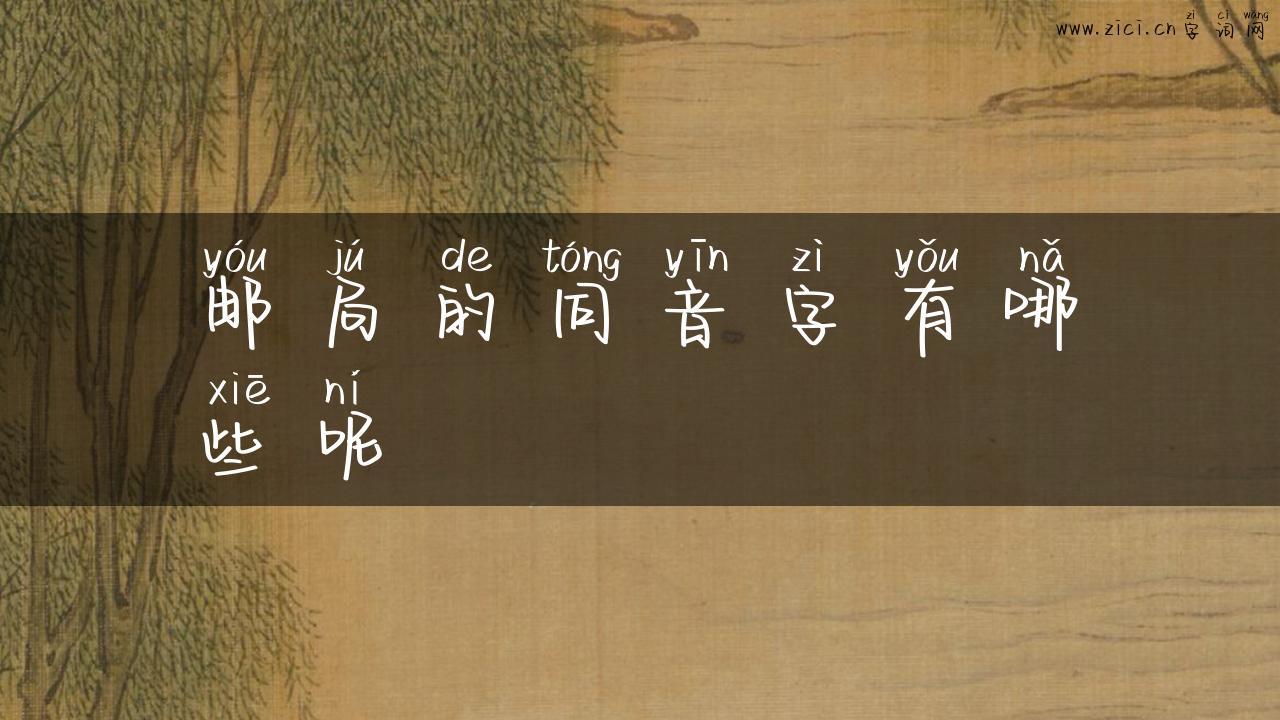 zì cí wǎng
www.zici.cn 字 词 网
yóu jú de tóng yīn zì yǒu nǎ
邮 局 的 同 音 字 有 哪
xiē ní
些 呢